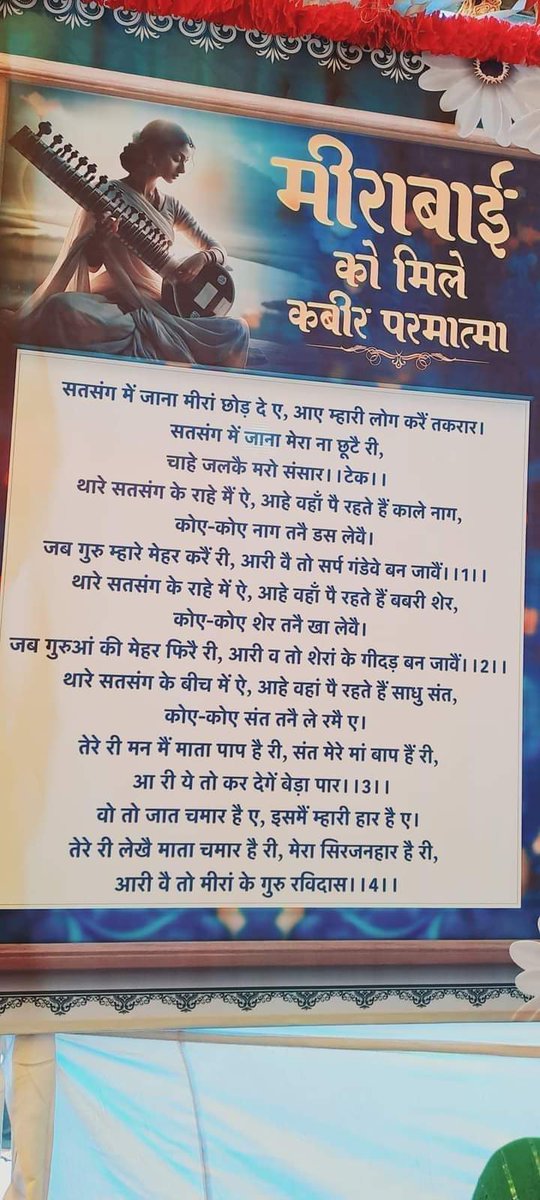 मीराबाई
को मिले
कबीर परमात्मा
सतसंग में जाना मीरां छोड़ दे ए, आए म्हारी लोग करैं तकरार।
सतसंग में जाना मेरा ना छूटै री,
चाहे जलकै मरो संसार।।टेक।।
थारे सतसंग के राहे मैं ऐ, आहे वहाँ पै रहते हैं काले नाग,
कोए-कोए नाग तनै डस लेवै।
जब गुरु म्हारे मेहर करैं री, आरी वै तो सर्प गंडेवे बन जावैं।।1।।
थारे सतसंग के राहे में ऐ, आहे वहाँ पै रहते हैं बबरी शेर,
कोए-कोए शेर तनै खा लेवै।
जब गुरुआं की मेहर फिरै री, आरी व तो शेरां के गीदड़ बन जावैं।।2।।
थारे सतसंग के बीच में ऐ, आहे वहां पै रहते हैं साधु संत,
कोए-कोए संत तनै ले रमै ए।
तेरे री मन मैं माता पाप है री, संत मेरे मां बाप हैं री,
आ री ये तो कर देगें बेड़ा पार।।3।।
वो तो जात चमार है ए, इसमैं म्हारी हार है ए।
तेरे री लेखै माता चमार है री, मेरा सिरजनहार है री,
आरी वै तो मीरां के गुरु रविदास।।4।।